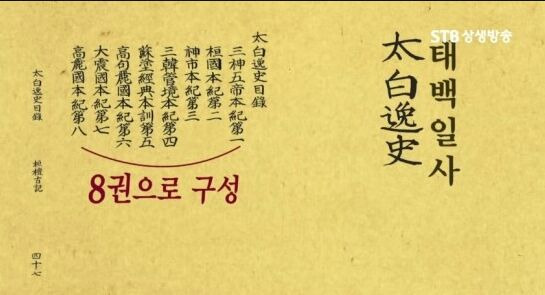 STB 상생방송
태백일사
太白逸史
太白逸史目錄
三神五帝本紀第一
桓國本紀第二
神市本紀第三
三韓管境本紀第四
蘇塗經典本訓第五
高句麗國本紀第六
大震國本紀第七
高麗國本紀第八
8권으로 구성
太白逸史目錄
桓檀古記
四十七